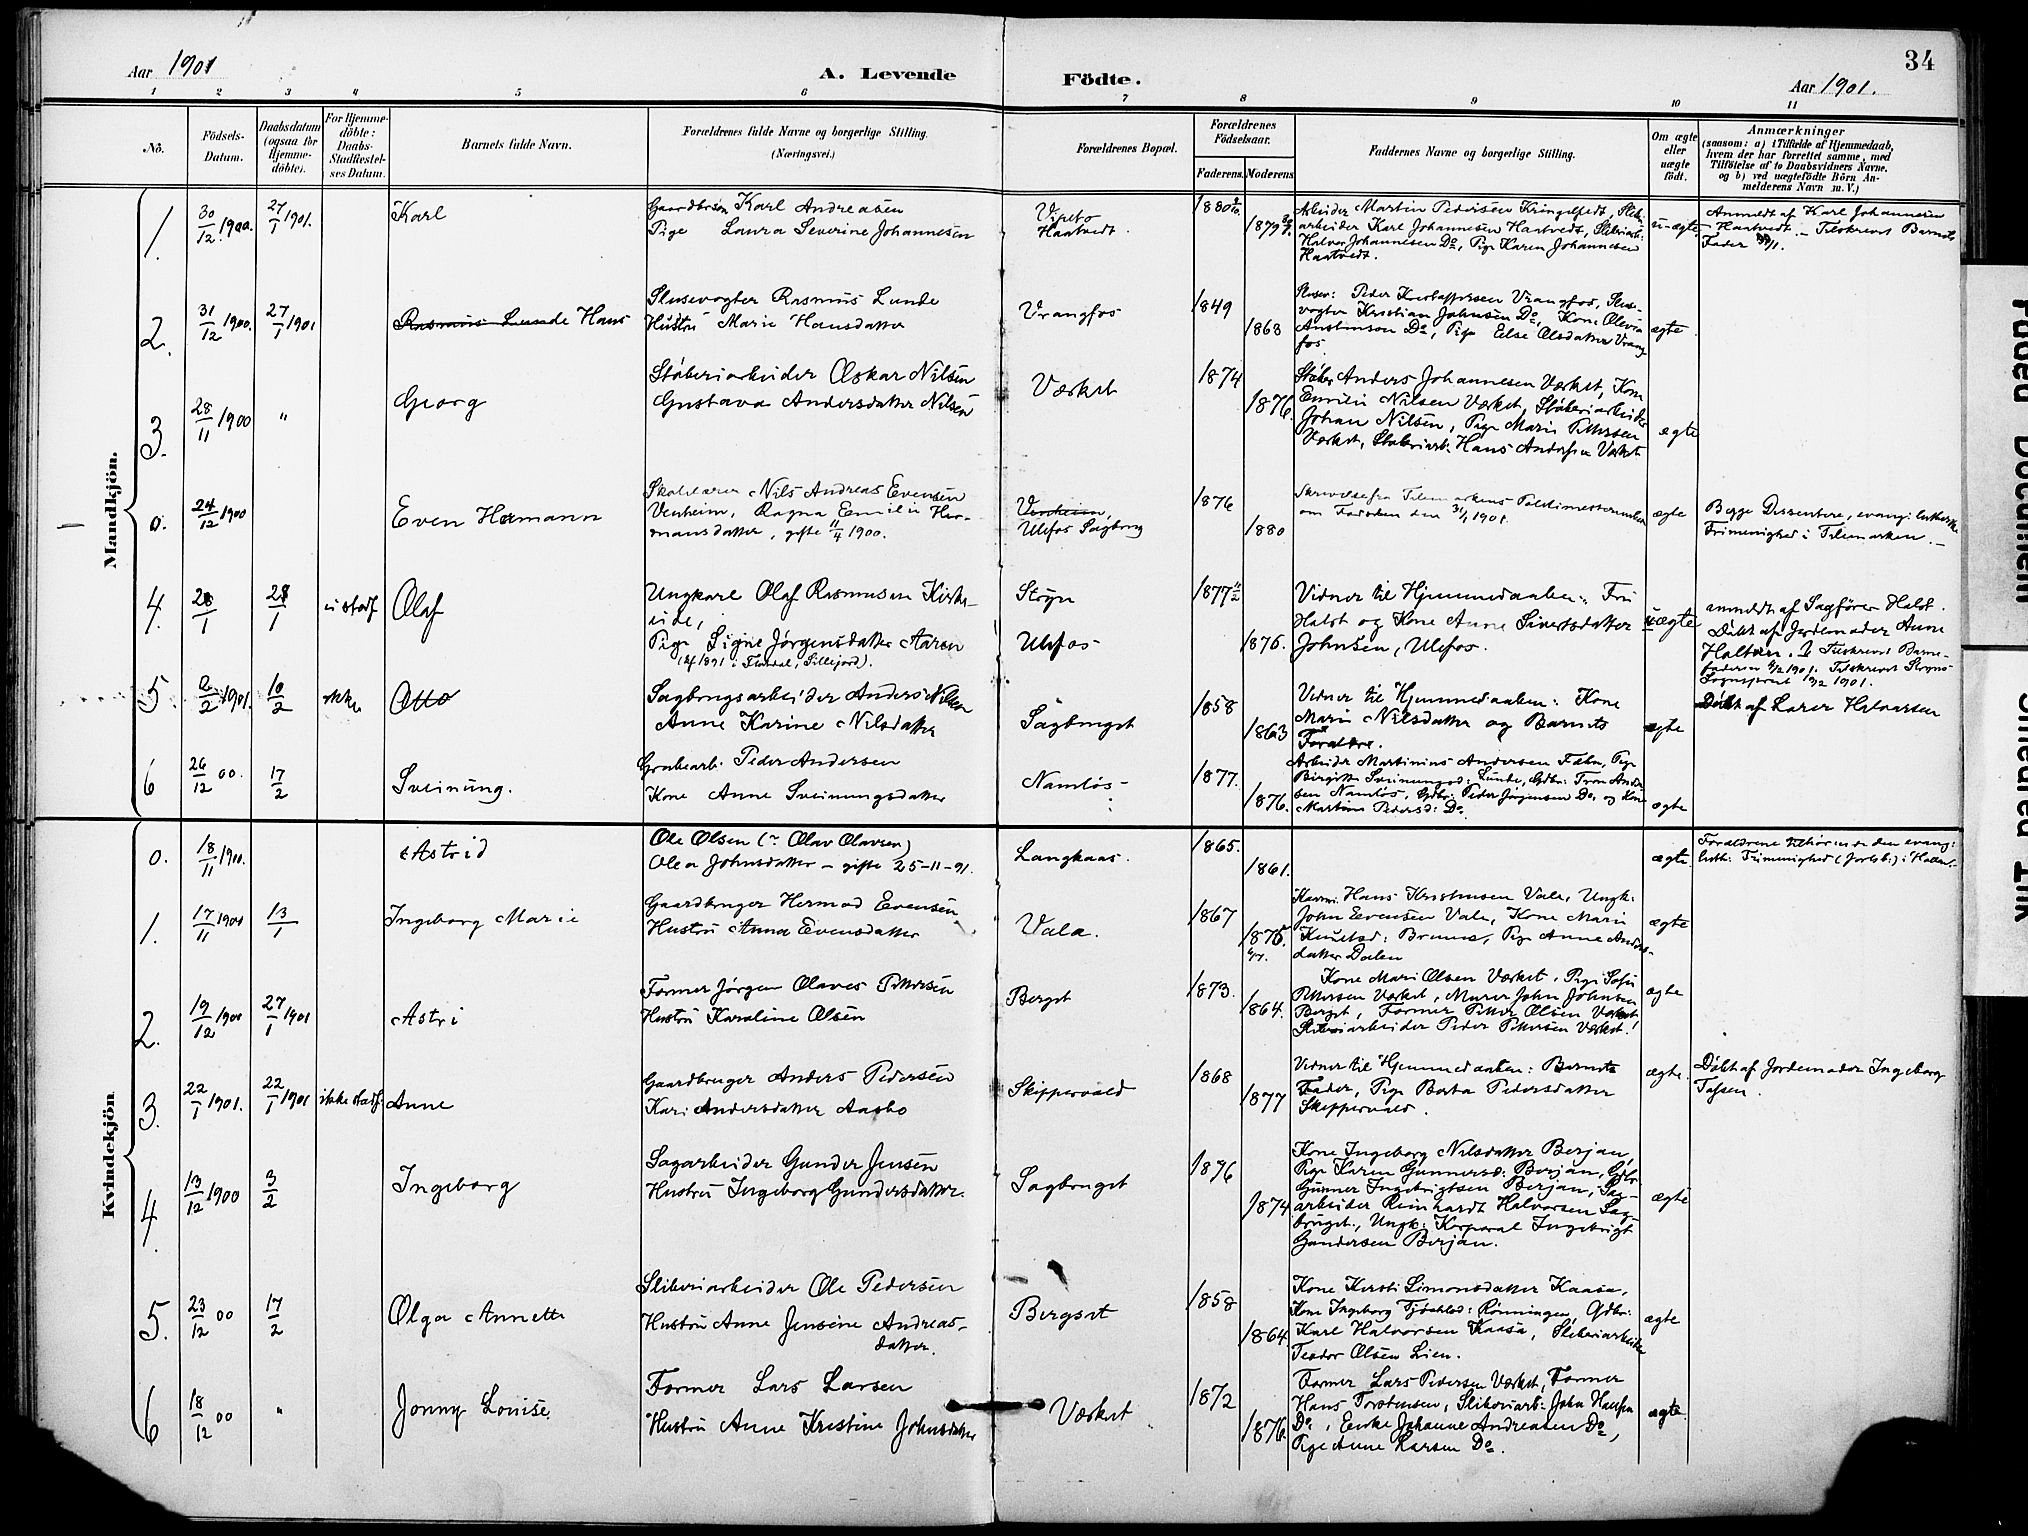 Aar 1901
A. Levende
Födte.
Aar 1901.
34
1 2 3 4 5 6 7 8 9 10 11
No.
Födsels-Datum.
Daabsdatum (ogsaa for Hjemme-döbte).
For Hjemme-döbte: Daabs-Stadfæstel-ses Datum.
Barnets fulde Navn.
Forældrenes fulde Navne og borgerlige Stilling. (Næringsvei.)
Forældrenes Bopæl.
Forældrenes Födselsaar.
Faderens. Moderens
Faddernes Navne og borgerlige Stilling.
Om ægte eller uægte födt.
Anmærkninger
(saasom: a) i Tilfælde af Hjemmedaab,
hvem der har forrettet samme, med
Tilföielse af to Daabsvidners Navne.
og b) ved uægtefödte Börn An-
melderens Navn m. V.)
Mandkjön.
1. 30/12 1900. 27/1 1901. Karl
Gaardbrsön Karl Andreasen
Pige Laura Severine Johannesen
Vipeto
Haatvedt.
1880
1879
Arbeider Martin Pedersen Kringelfedt, Slibe-
arbeider Karl Johannesen Haatvedt, Slibriarb:
Halvor Johannesen Do, Pige Karen Johannesen
Haatvedt.
u-ægte.
Anmeldt af Karl Johannesen
- Haatvedt. - Tilskrevet Barnets
Fader
2. 31/12 1900. 27/1 1901 Rasmus Lunde Hans
Slusevogter Rasmus Lunde
Hustru Marie Hansdatter
Vrangfos
1849
1868
Slusev: Peder Kristoffersen Vrangfos, Sluse-
vogter Kristian Johnsen Do, Kone Olevia
Austinson Do, Pige Else Olsdatter Vrang
fos
ægte
3. 28/11 1900 " Georg
Støberiarbeider Oskar Nilsen
Gustava Andersdatter Nilsen
Værket
1874
1876.
Støber Anders Johannesen Værket, Kone
Emilie Nilsen Værket, Støberiarbeider
Johan Nilsen, Pige Marie Pettersen
Værket, Støberiarb: Hans Andersen Værket
ægte
0. 24/12 1900 Even Hermann
Skolelærer Nils Andreas Evensen
Venheim, Ragna Emilie Her-
mansdatter, gifte 11/4 1900.
Venheim,
Ulefos Sagbrug
1876
1880
Skrivelse fra Telemarkens Politimesterembede
om Fødselen den 31/1 1901.
ægte
Begge Dissentere, evang: lutherske
Frimenighed i Telemarken. -
4. 28/1 28/1 ei stadf Olaf
Ungkarl Olaf Rasmusen Kirke-
eide,
Pige Signe Jørgensdatter Aaren
Stryn
Ulefos
1877
1876.
Vidner til Hjemmedaaben: Fru
Halst og Kone Anne Sivertsdatter
Johnsen, Ulefos.
uægte
anmeldt af Sagfører Halst.
Døbt af Jordemoder Anne
Halvorsen. Tilskrevet Barne-
faderen 1901. Tilskrevet Stryns
Sognepræst 1901.
5 2/2 1901. 10/2 ikke Otto
Sagbrugsarbeider Anders Nilsen
Anne Karine Nilsdatter
Sagbruget
1858
1863
Vidner til Hjemmedaaben: Kone
Marie Nilsdatter og Barnets
Forældre.
ægte
Døbt af Lærer Halvorsen
6 26/12 00. 17/2 Sveinung.
Grubearb: Peder Andersen
Kone Anne Sveinungsdatter
Namløs
1877.
1876.
Arbeider Martinius Andersen Fæhn, Pige
Birgitte Sveinungsd: Lunde, Gdbr: Tron Ander
sen Namløs, Gdbr: Peder Jørgensen Do, og Kone
Martine Pedersd: Do
ægte
Kvindekjön
0. 18/11 1900. Astrid
Ole Olsen (Olav Olavsen)
Olea Johnsdatter - gifte 25-11-91.
Langkaas.
1865.
1861.
ægte
Forældrene tilhørende den evang:
luth: Frimenighed (Jarlsb:) i Holden.
1. 17/11 1900 13/1 Ingeborg Marie
Gaardbruger Hermod Evensen
Hustru Anna Evensdatter
Vala.
1867
1875.
Kaarm. Hans Kristensen Vala, Ungk:
John Evensen Vala, Kone Marie
Knutsd: Bruune, Pige Anne Anders-
datter Dalen
ægte
2. 19/12 1900 27/1 1901 Astri
Former Jørgen Olaves Pettersen
Hustru Karoline Olsen
Berget
1873.
1864.
Kone Mari Olsen Værket, Pige Sofie
Pettersen Værket, Murer John Johnsen
Berget, Former Petter Olsen Værket
Sliberiarbeider Peder Pettersen Værket.
ægte
3. 22/1 1901. 22/1 1901 ikke stadf. Anne
Gaardbruger Anders Pedersen
Kari Andersdatter Aasbo
Skippervold
1868
1877
Vidner til Hjemmedaaben: Barnets
Fader, Pige Berta Pedersdatter
Skippervold.
ægte.
Døbt af Jordemoder Ingeborg
Tofsen.
4. 13/12 1900 3/2 Ingeborg
Sagarbeider Gunder Jensen
Hustru Ingeborg Gundersdatter.
Sagbruget
1876
1874
Kone Ingeborg Nilsdatter Berjan,
Pige Karen Gunnersd: Berjan, Gdbr
Gunner Ingebrigtsen Berjan, Sag-
arbeider Reinhardt Halvorsen Sag-
bruget, Ungk: Korporal Ingebrigt
Gundersen Berjan.
ægte
5. 23/12 00 17/2 Olga Annette
Sliberiarbeider Ole Pedersen
Hustru Anne Jensine Andreas-
datter.
Bergset
1858
1864
Kone Kersti Simonsdatter Kaasa,
Kone Ingeborg Rønningen, Gdbr:
Karl Halvorsen Kaasa, Sliberiarbeider
Teodor Olsen Lien.
ægte
6 18/12 00 " Jonny Louise
Former Lars Larsen
Hustru Anne Kristine Johnsdatter
Værket
1872
1876.
Former Lars Pedersen Værket, Former
Hans Torstensen, Sliberiarb: John Hansen
Do, Enke Johanne Andreasen Do,
Pige Anne Larsen Do.
ægte.
Faded Document
Smeared Ink